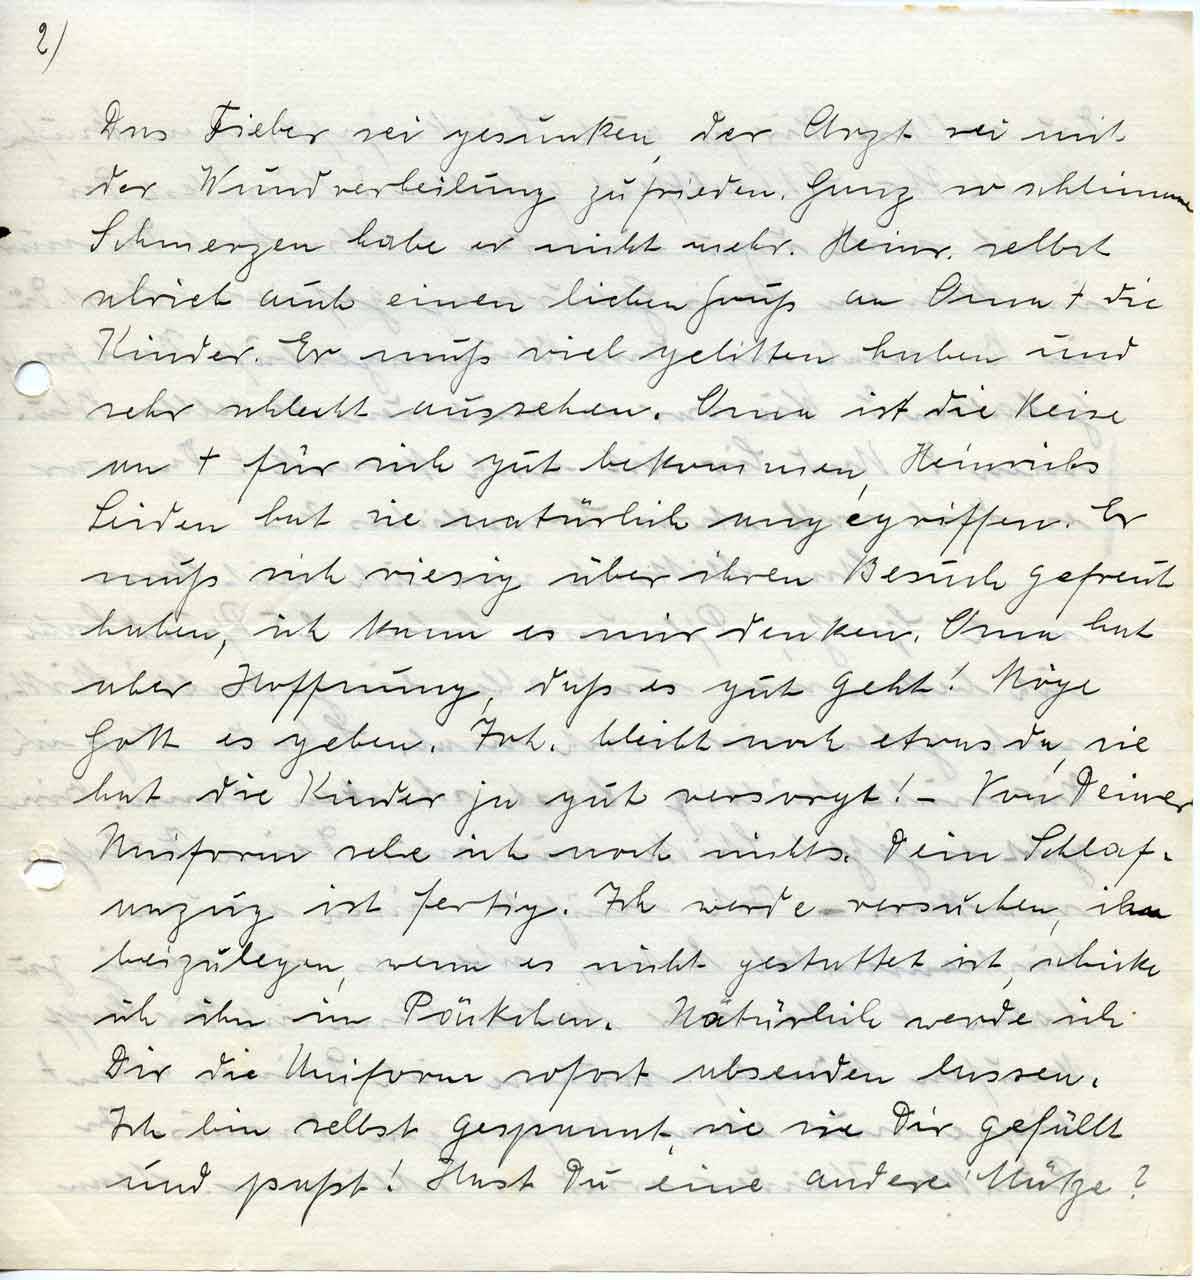 2)
Das Fieber sei gesunken, der Arzt sei mit
der Wundverheilung zufrieden. Ganz so schlimme
Schmerzen habe er nicht mehr. Heinr. selbst
schrieb auch einen lieben Gruß an Oma + die
Kinder. Er muß viel gelitten haben und
sehr schlecht aussehen. Oma ist die Reise
an + für sich gut bekommen, Heinrichs
Leiden hat sie natürlich angegriffen. Er
muß sich riesig über ihren Besuch gefreut
haben, ich kann es mir denken. Oma hat
aber Hoffnung, daß es gut geht! Möge
Gott es geben. Joh. bleibt noch etwas da, sie
hat die Kinder ja gut versorgt! – Von Deiner
Uniform sehe ich noch nichts. Dein Schlaf-
anzug ist fertig. Ich werde versuchen, ihn
beizulegen, wenn es nicht gestattet ist, schicke
ich ihn im Päckchen. Natürlich werde ich
Dir die Uniform sofort absenden lassen.
Ich bin selbst gespannt, wie sie Dir gefällt
und paßt! Hast Du eine andere Mütze?